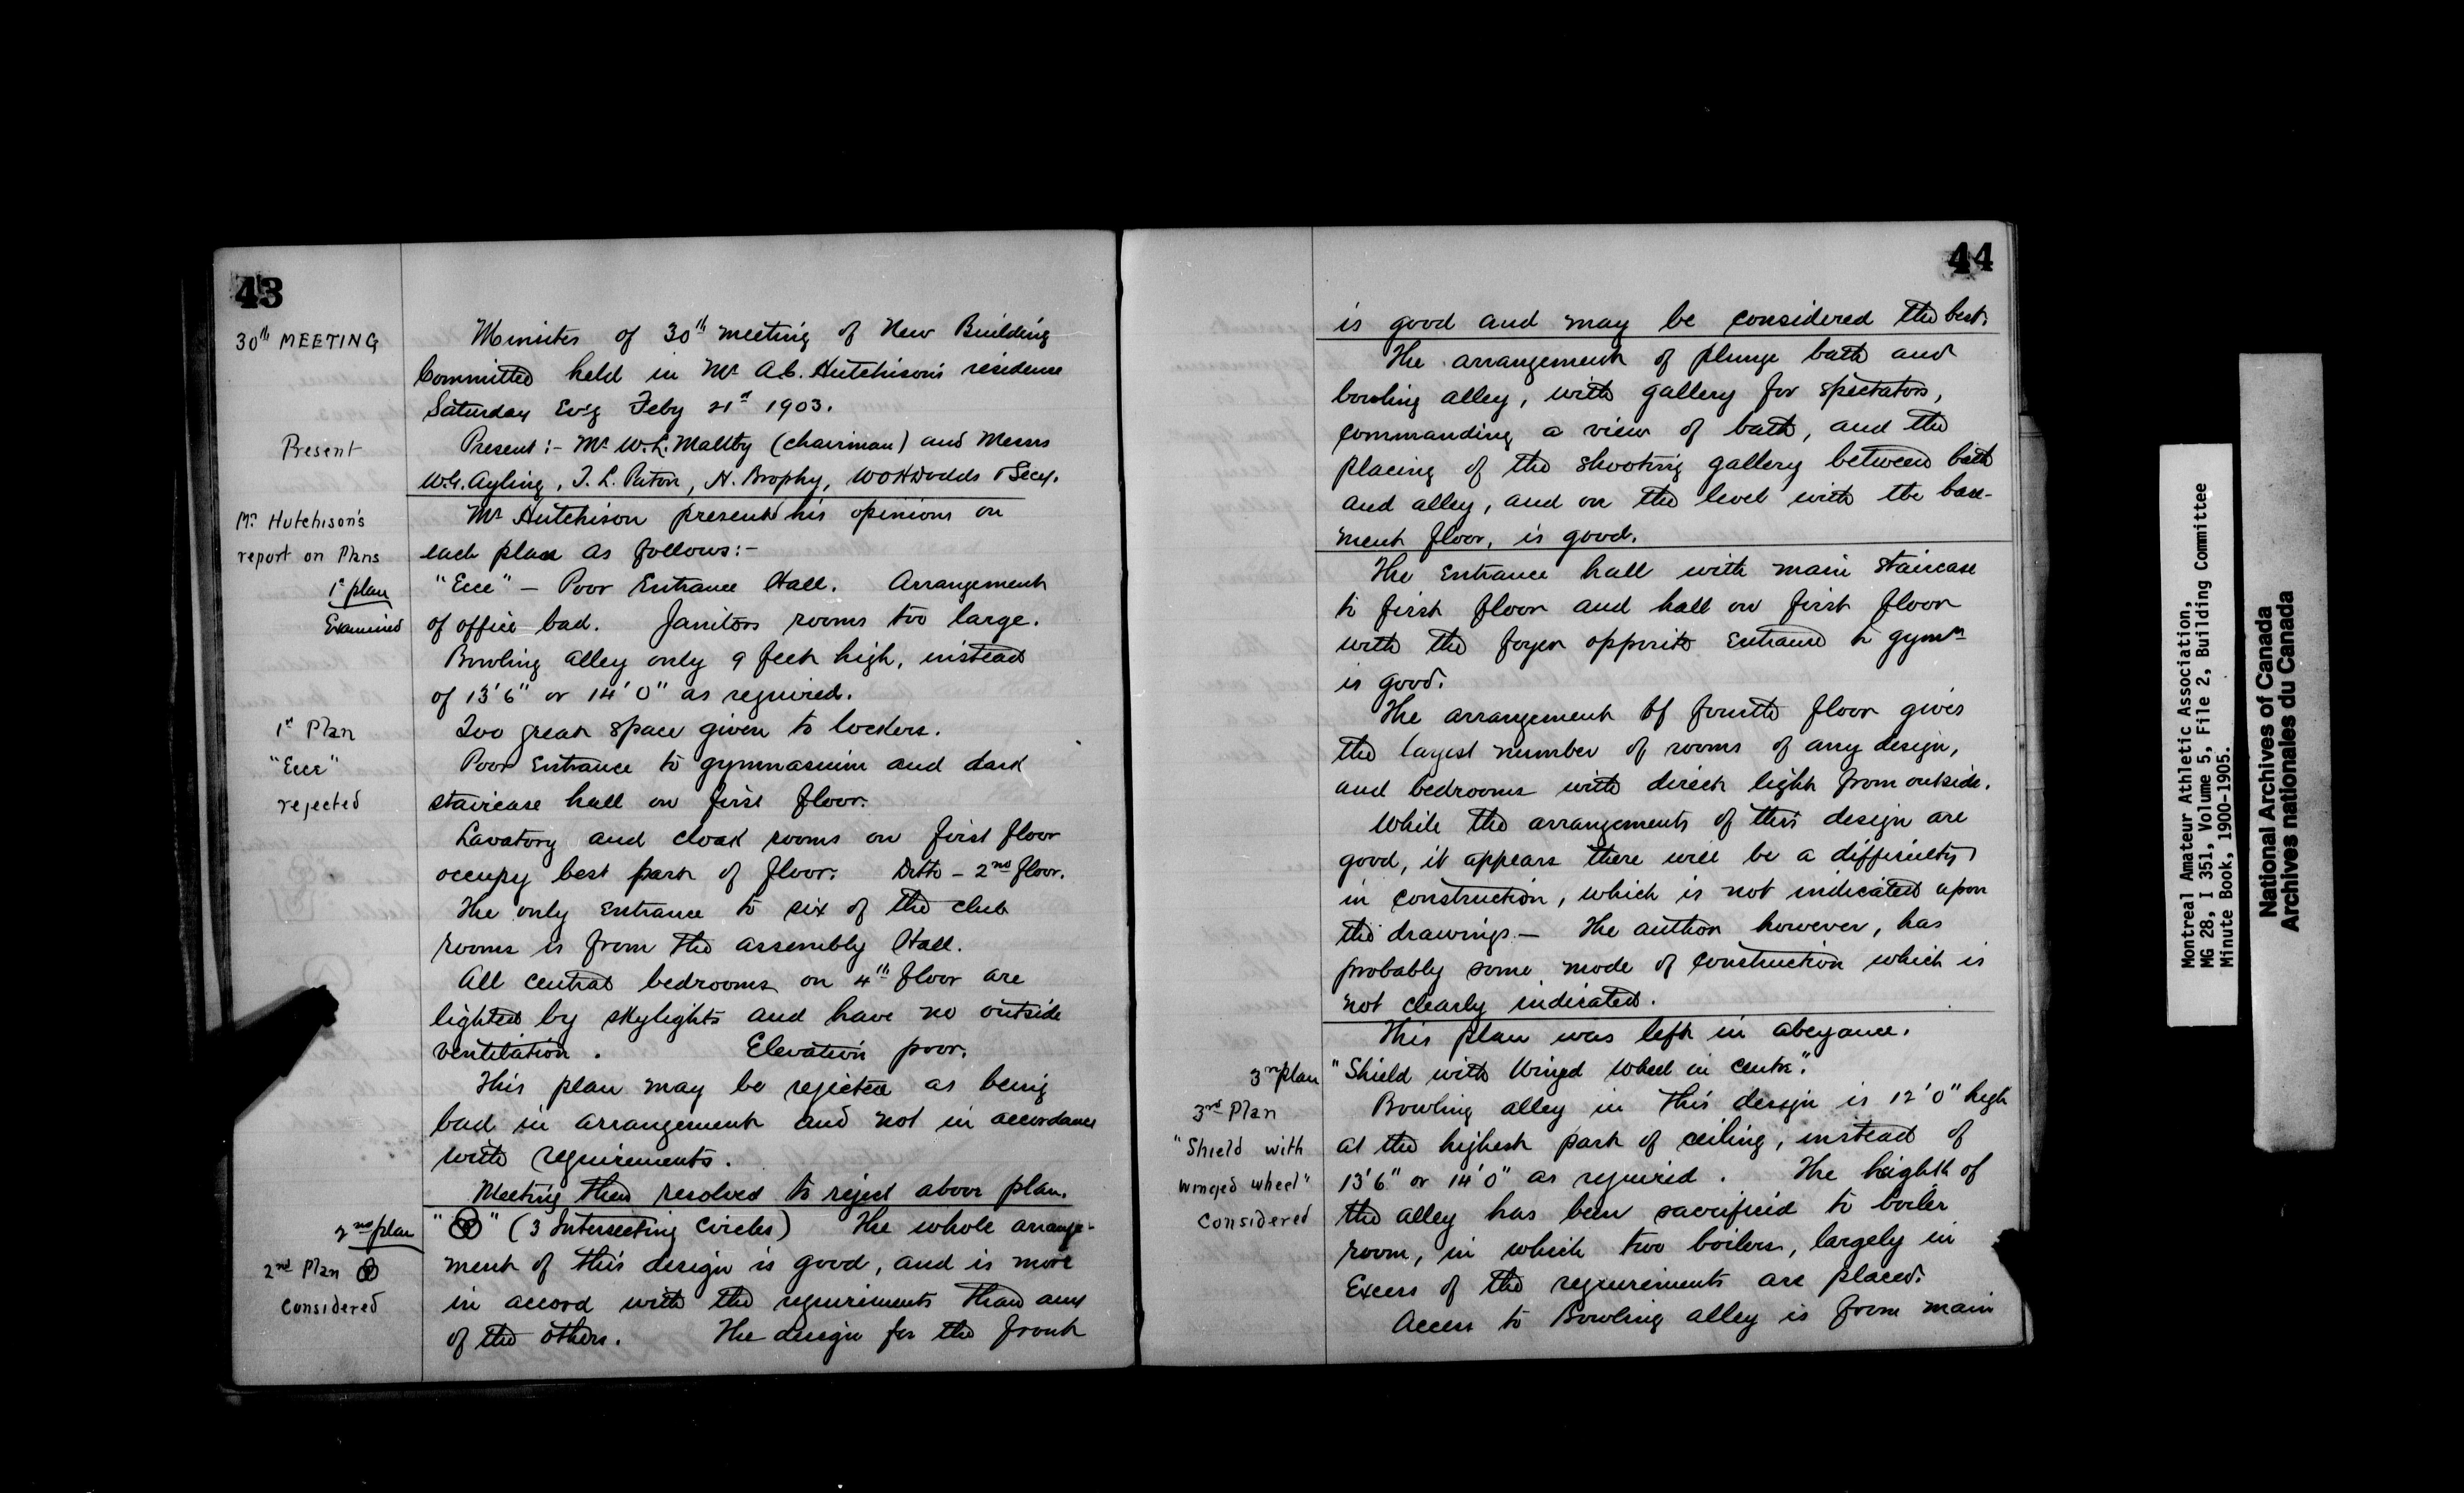 43
30th MEETING
Minutes of 30th meeting of New Building
Committee held in Mr A.C. Hutchison's residence
Saturday Ev'g Feby 21st 1903.
Present
Present :- Mr W.L. Maltby (chairman) and Messrs
W.G. Ayling, T. L. Paton, N. Brophy, W O H Dodds & Secy.
Mr Hutchison's
report on Plans
Mr Hutchison presented his opinions on
each plan as follows :-
1st plan
Examined
"Ecce" — Poor Entrance Hall. Arrangement
of office bad. Janitors rooms too large.
Bowling alley only 9 feet high, instead
of 13'6" or 14'0" as required.
1st Plan
"Ecce"
rejected
Too great space given to lockers.
Poor Entrance to gymnasium and dark
staircase hall on first floor.
Lavatory and cloak rooms on first floor
occupy best part of floor. Ditto - 2nd floor.
The only entrance to six of the club
rooms is from the assembly Hall.
All central bedrooms on 4th floor are
lighted by skylights and have no outside
ventilation. Elevation poor.
This plan may be rejected as being
bad in arrangement and not in accordance
with requirements.
Meeting then resolved to reject above plan.
2nd plan
2nd Plan
Considered
" " (3 Intersecting Circles) The whole arrange-
ment of this design is good, and is more
in accord with the requirements than any
of the others. The design for the front
44
is good and may be considered the best.
The arrangement of plunge bath and
bowling alley, with gallery for spectators,
commanding a view of bath, and the
placing of the shooting gallery between bath
and alley, and on the level with the base-
ment floor, is good.
The Entrance hall with main staircase
to first floor and hall on first floor
with the foyer opposite Entrance to gymm
is good.
The arrangement of fourth floor gives
the largest number of rooms of any design,
and bedrooms with direct light from outside.
While the arrangements of this design are
good, it appears there will be a difficulty
in construction, which is not indicated upon
the drawings — The author however, has
probably some mode of construction which is
not clearly indicated.
This plan was left in abeyance.
3rd plan
"Shield with Winged Wheel in centre".
3rd Plan
"Shield with
winged wheel"
Considered
Bowling alley in this design is 12'0" high
at the highest part of ceiling, instead of
13'6" or 14'0" as required. The heighth of
the alley has been sacrificed to boiler
room, in which two boilers, largely in
Excess of the requirements are placed.
Access to Bowling alley is from main
Montreal Amateur Athletic Association,
MG 28, I 351, Volume 5, File 2, Building Committee
Minute Book, 1900-1905.
National Archives of Canada
Archives nationales du Canada